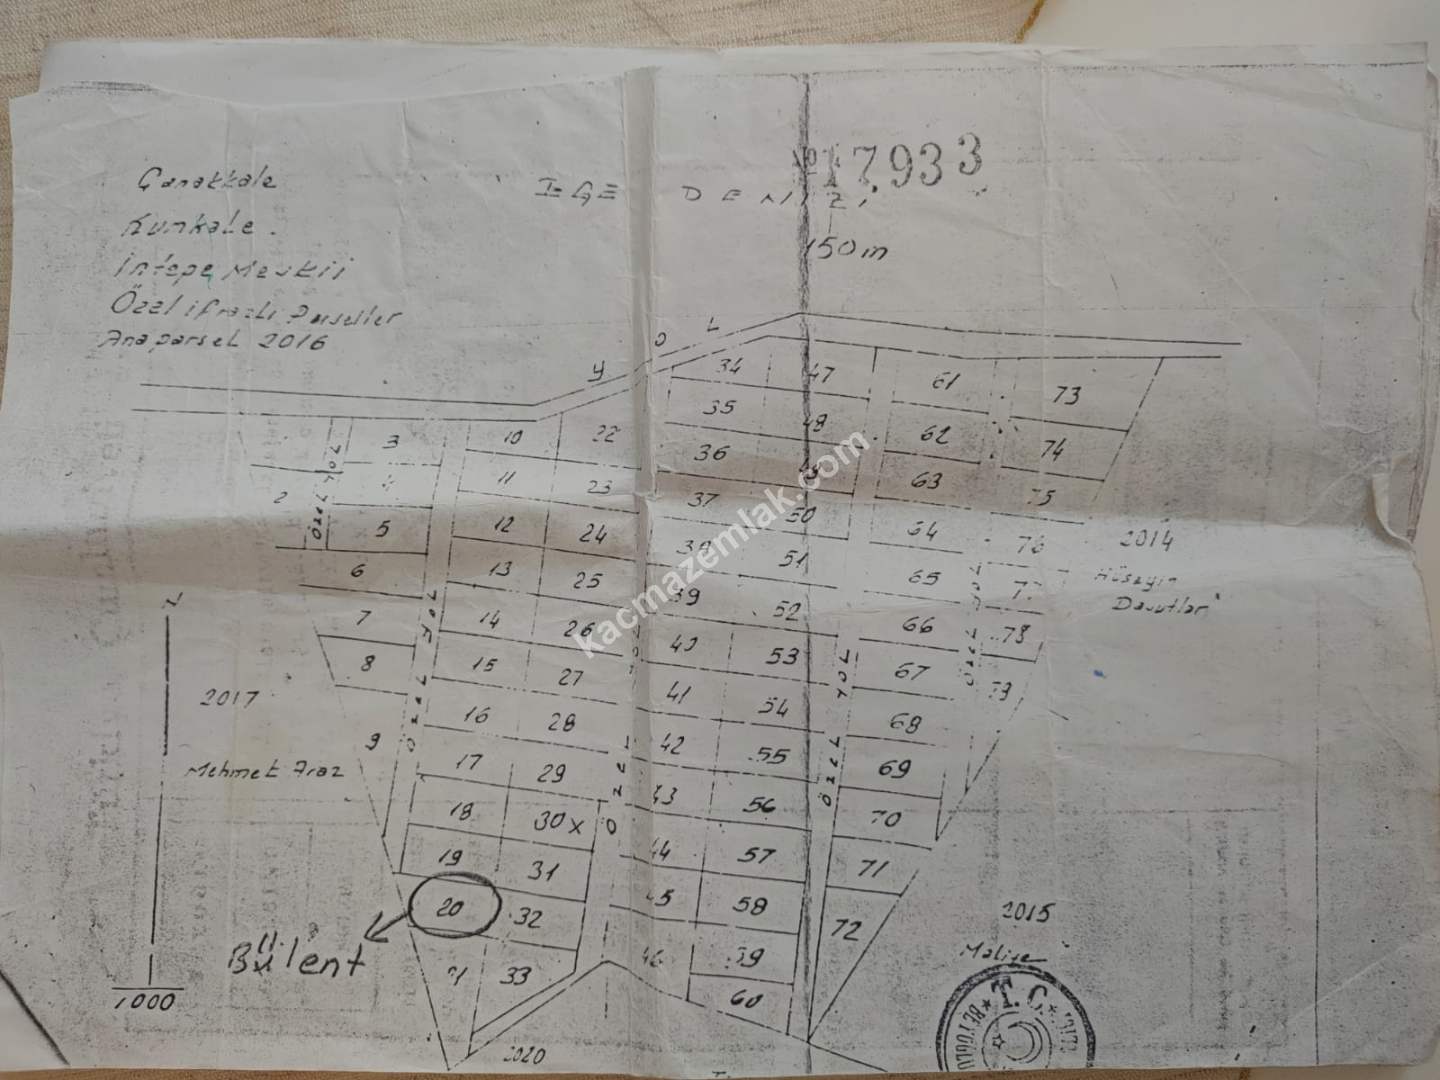 Çanakkale
Kumkale.
İntepe Mevkii
Özel ifrazlı Parseller
Anaparsel 2016
No 17.933
EGE DENİZİ
150m
YOL
34 47 61 73
35 48 62 74
36 49 63 75
37 50 64 76
38 51 65 77
39 52 66 78
40 53 67 79
41 54 68
42 55 69
43 56 70
44 57 71
45 58 72
46 59
60
3 10 22
4 11 23
2 5 12 24
6 13 25
7 14 26
8 15 27
16 28
9 17 29
18 30x
19 31
20 32
21 33
ÖZEL YOL
ÖZEL YOL
ÖZEL
ÖZEL YOL
ÖZEL YOL
2014
Hüseyin
Davutlar
2017
Mehmet Araz
2015
Maliye
2020
Bülent
1000
T.C.
BEYOĞLU
kacmazemlak.com